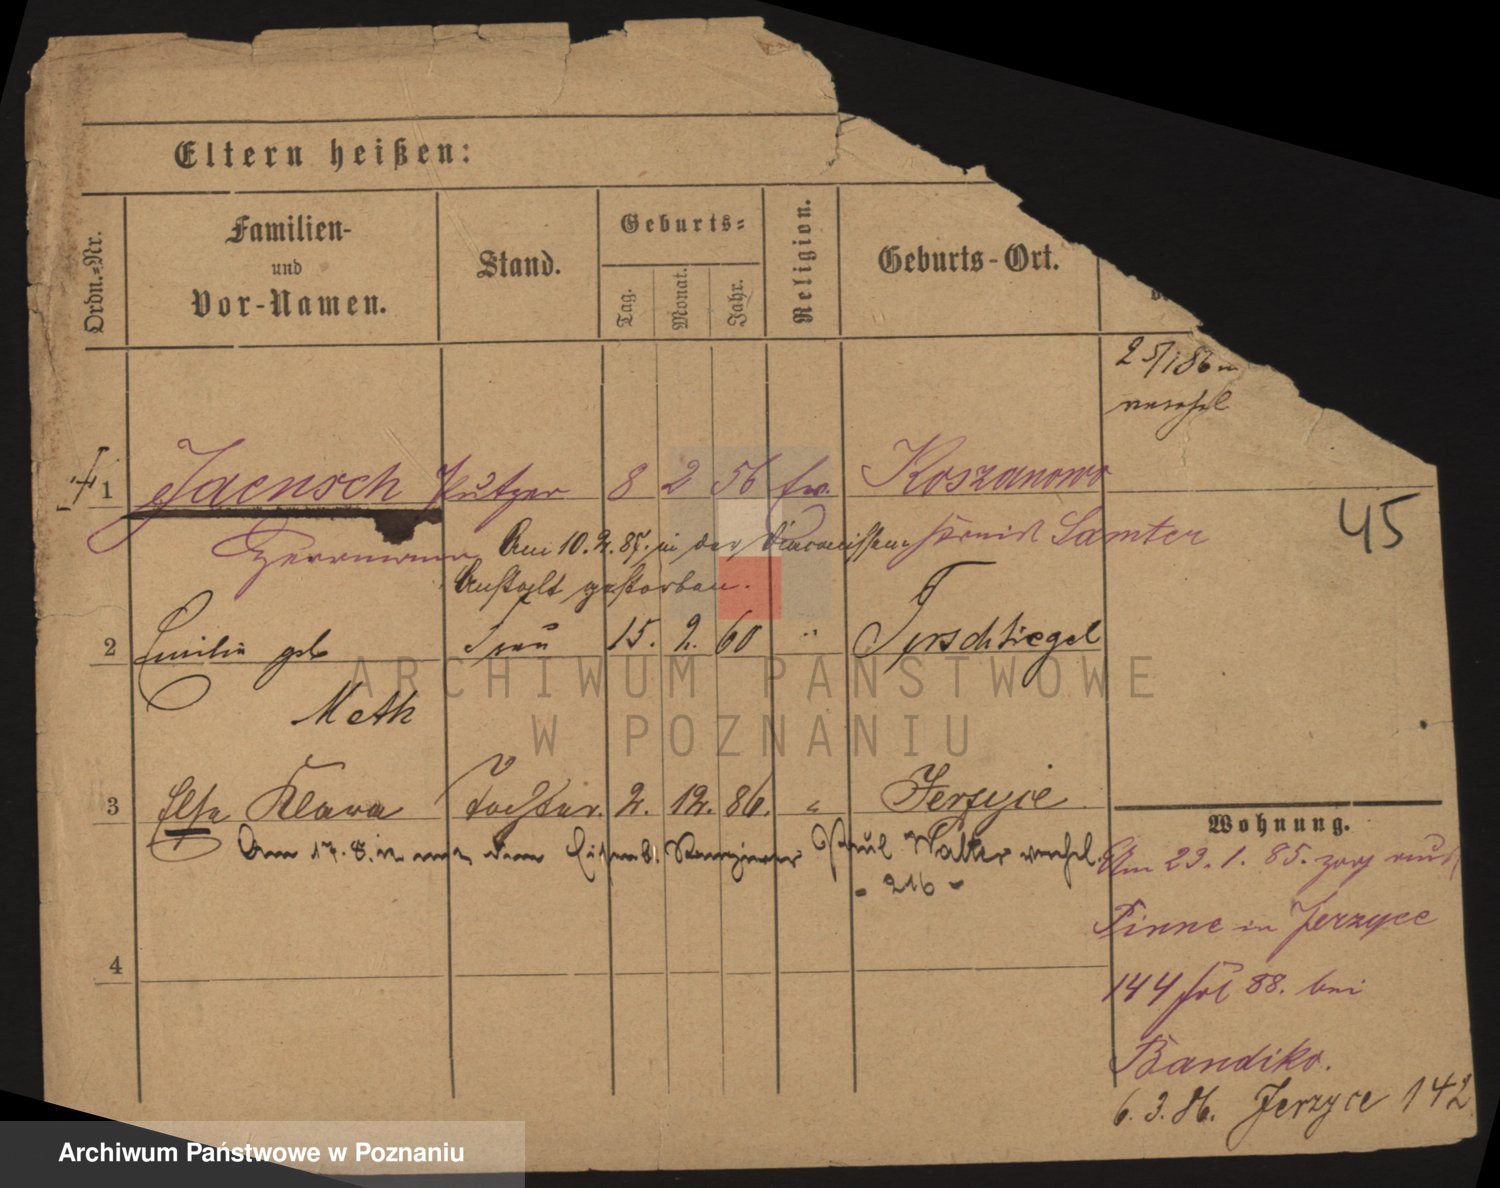 Eltern heißen:
Ordn.-Nr.
Familien-
und
Vor-Namen.
Stand.
Geburts-
Tag.
Monat.
Jahr.
Religion.
Geburts-Ort.
25/1 86
1 Jaensch Putzer 8 2 56 ev. Koszanowo
45
Herrmann Am 10.2.87. in der Diaconissen Kreis Samter
Anstalt gestorben.
2 Emilie geb Frau 15. 2. 60 " Tirschtiegel
Meth
3 Else Klara Tochter. 2. 12. 86. " Jerzyce
Am 17. 8. Paul Walter
- 216 -
4
Wohnung.
Am 23. 1. 85. zog aus
Pinne in Jerzyce
144 fol 88. bei
Bandiko.
6. 3. 86. Jerzyce 142
ARCHIWUM PAŃSTWOWE
W POZNANIU
Archiwum Państwowe w Poznaniu